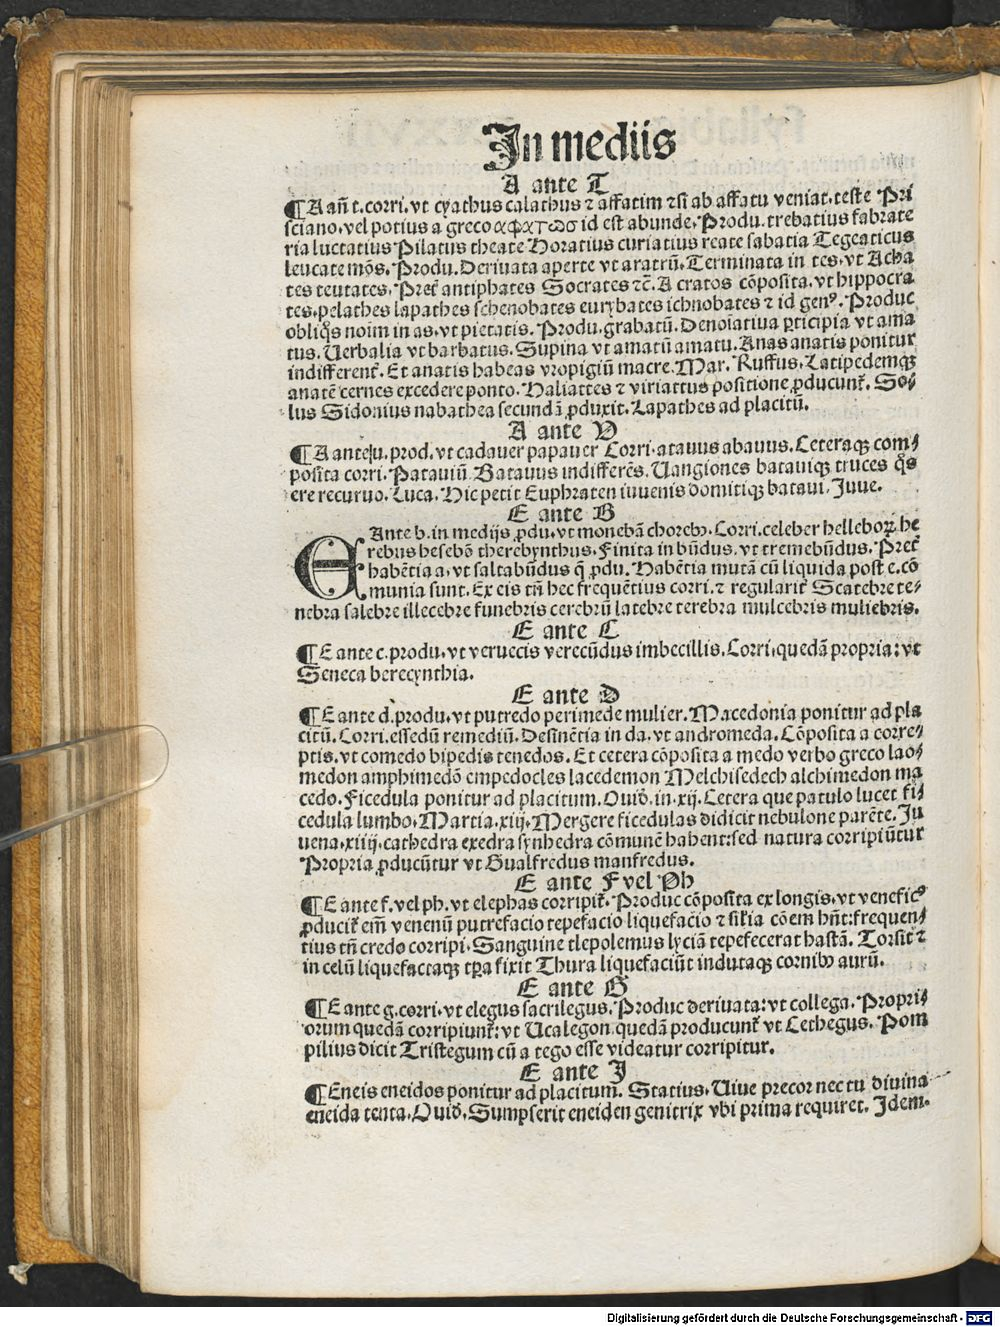 In mediis
A ante T
¶A añ t. corri. vt cyathus calathus ⁊ affatim ⁊ si ab affatu veniat. teste Pri
sciano. vel potius a greco αφατωσ id est abunde. Produ. trebatius fabrate
ria luctatius Pilatus theate Horatius curiatius reate sabatia Tegeaticus
leucate mõs. Produ. Deriuata aperte vt aratrũ. Terminata in tes. vt Acha
tes teutates. Pret̃ antiphates Socrates ⁊c̃. A cratos cõposita. vt hippocra
tes. pelathes lapathes schenobates eurybates ichnobates ⁊ id genꝰ. Produc
obliq̃s noim in as. vt pietatis. Produ. grabatũ. Denoiatiua ꝑticipia vt ama
tus. Uerbalia vt barbatus. Supina vt amatũ amatu. Anas anatis ponitur
indifferent̃. Et anatis habeas vropigiũ macre. Mar. Ruffus. Latipedemqꝫ
anatẽ cernes excedere ponto. Haliattes ⁊ viriattus positione ꝓducunt̃. So⸗
lus Sidonius nabathea secundã ꝓduxit. Lapathes ad placitũ.
A ante V
¶A ante u. prod. vt cadauer papauer Corri. atauus abauus. Ceteraqꝫ com⸗
posita corri. Patauiũ. Batauus indifferẽs. Uangiones batauiqꝫ truces q̃s
ere recuruo. Luca. Hic petit Euphraten iuuenis domitiqꝫ bataui. Juue.
E ante B
EAnte b. in medijs ꝓdu. vt monebã chorebꝰ. Corri. celeber helleboꝝ he
rebus hesebõ therebynthus. Finita in bũdus. vt tremebũdus. Pret̃
habẽtia a. vt saltabũdus q̃ ꝓdu. Habẽtia mutã cũ liquida post e. cõ
munia sunt. Ex eis tñ hec frequẽtius corri. ⁊ regularit̃ Scatebre te⸗
nebra salebre illecebre funebris cerebrũ latebre terebra mulcebris muliebris.
E ante C
¶E ante c. produ. vt veruecis verecũdus imbecillis. Corri. quedã propria: vt
Seneca berecynthia.
E ante D
¶E ante d. produ. vt putredo perimede mulier. Macedonia ponitur ad pla
citũ. Corri. essedũ remediũ. Desinẽtia in da. vt andromeda. Cõposita a corre⸗
ptis. vt comedo bipedis tenedos. Et cetera cõposita a medo verbo greco lao⸗
medon amphimedõ empedocles lacedemon Melchisedech alchimedon ma
cedo. Ficedula ponitur ad placitum. Ouid̃. in. xij. Cetera que patulo lucet fi⸗
cedula lumbo. Martia. xiij. Mergere ficedulas didicit nebulone parẽte. Ju
uena. xiiij. cathedra exedra synhedra cõmunẽ habent: sed natura corripiũtur
Propria ꝓducũtur vt Gualfredus manfredus.
E ante F vel Ph
¶E ante f. vel ph. vt elephas corripit̃. Produc cõposita ex longis. vt veneficꝰ
ꝓducit̃ em̃ venenũ putrefacio tepefacio liquefacio ⁊ sil̃ia cõem hñt: frequen⸗
tius tñ credo corripi. Sanguine tlepolemus lyciã tepefecerat hastã. Torsit ⁊
in celũ liquefactaqꝫ tꝑa fixit Thura liquefaciũt indutaqꝫ cornibꝰ aurũ.
E ante G
¶E ante g. corri. vt elegus sacrilegus. Produc deriuata: vt collega. Propri⸗
orum quedã corripiunt̃: vt Ucalegon. quedã producunt̃ vt Cethegus. Pom
pilius dicit Tristegum cũ a tego esse videatur corripitur.
E ante J
¶Eneis eneidos ponitur ad placitum. Statius. Uiue precor nec tu diuina
eneida tenta. Ouid̃. Sumpserit eneiden genitrix vbi prima requiret. Idem.
Digitalisierung gefördert durch die Deutsche Forschungsgemeinschaft - DFG